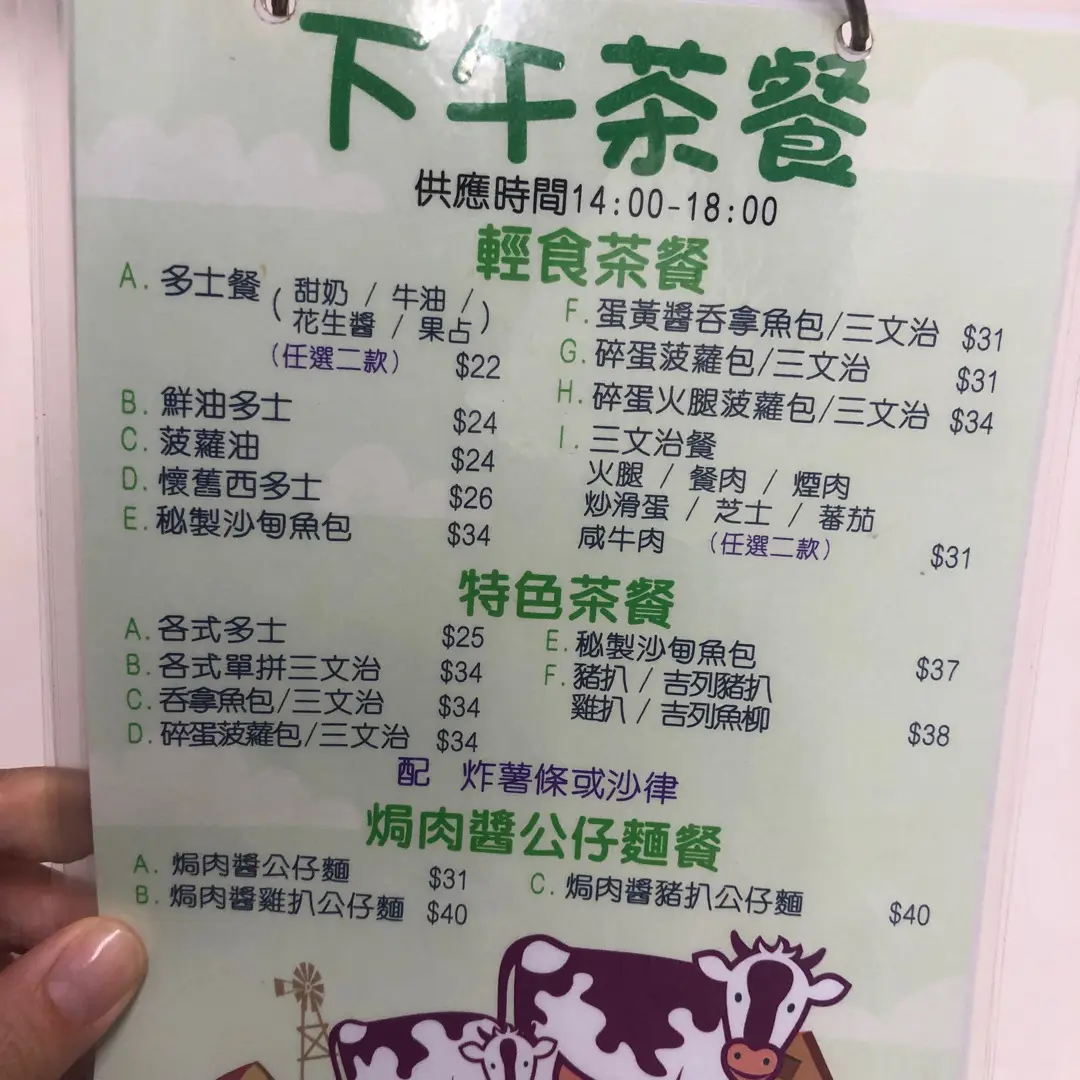 下午茶餐
供應時間14:00-18:00
輕食茶餐
A. 多士餐 (甜奶 / 牛油 /
花生醬 / 果占)
(任選二款) $22
B. 鮮油多士 $24
C. 菠蘿油 $24
D. 懷舊西多士 $26
E. 秘製沙甸魚包 $34
F. 蛋黃醬吞拿魚包/三文治 $31
G. 碎蛋菠蘿包/三文治 $31
H. 碎蛋火腿菠蘿包/三文治 $34
I. 三文治餐
火腿 / 餐肉 / 煙肉
炒滑蛋 / 芝士 / 蕃茄
咸牛肉 (任選二款) $31
特色茶餐
A. 各式多士 $25
B. 各式單拼三文治 $34
C. 吞拿魚包/三文治 $34
D. 碎蛋菠蘿包/三文治 $34
E. 秘製沙甸魚包 $37
F. 豬扒 / 吉列豬扒
雞扒 / 吉列魚柳 $38
配 炸薯條或沙律
焗肉醬公仔麵餐
A. 焗肉醬公仔麵 $31
B. 焗肉醬雞扒公仔麵 $40
C. 焗肉醬豬扒公仔麵 $40